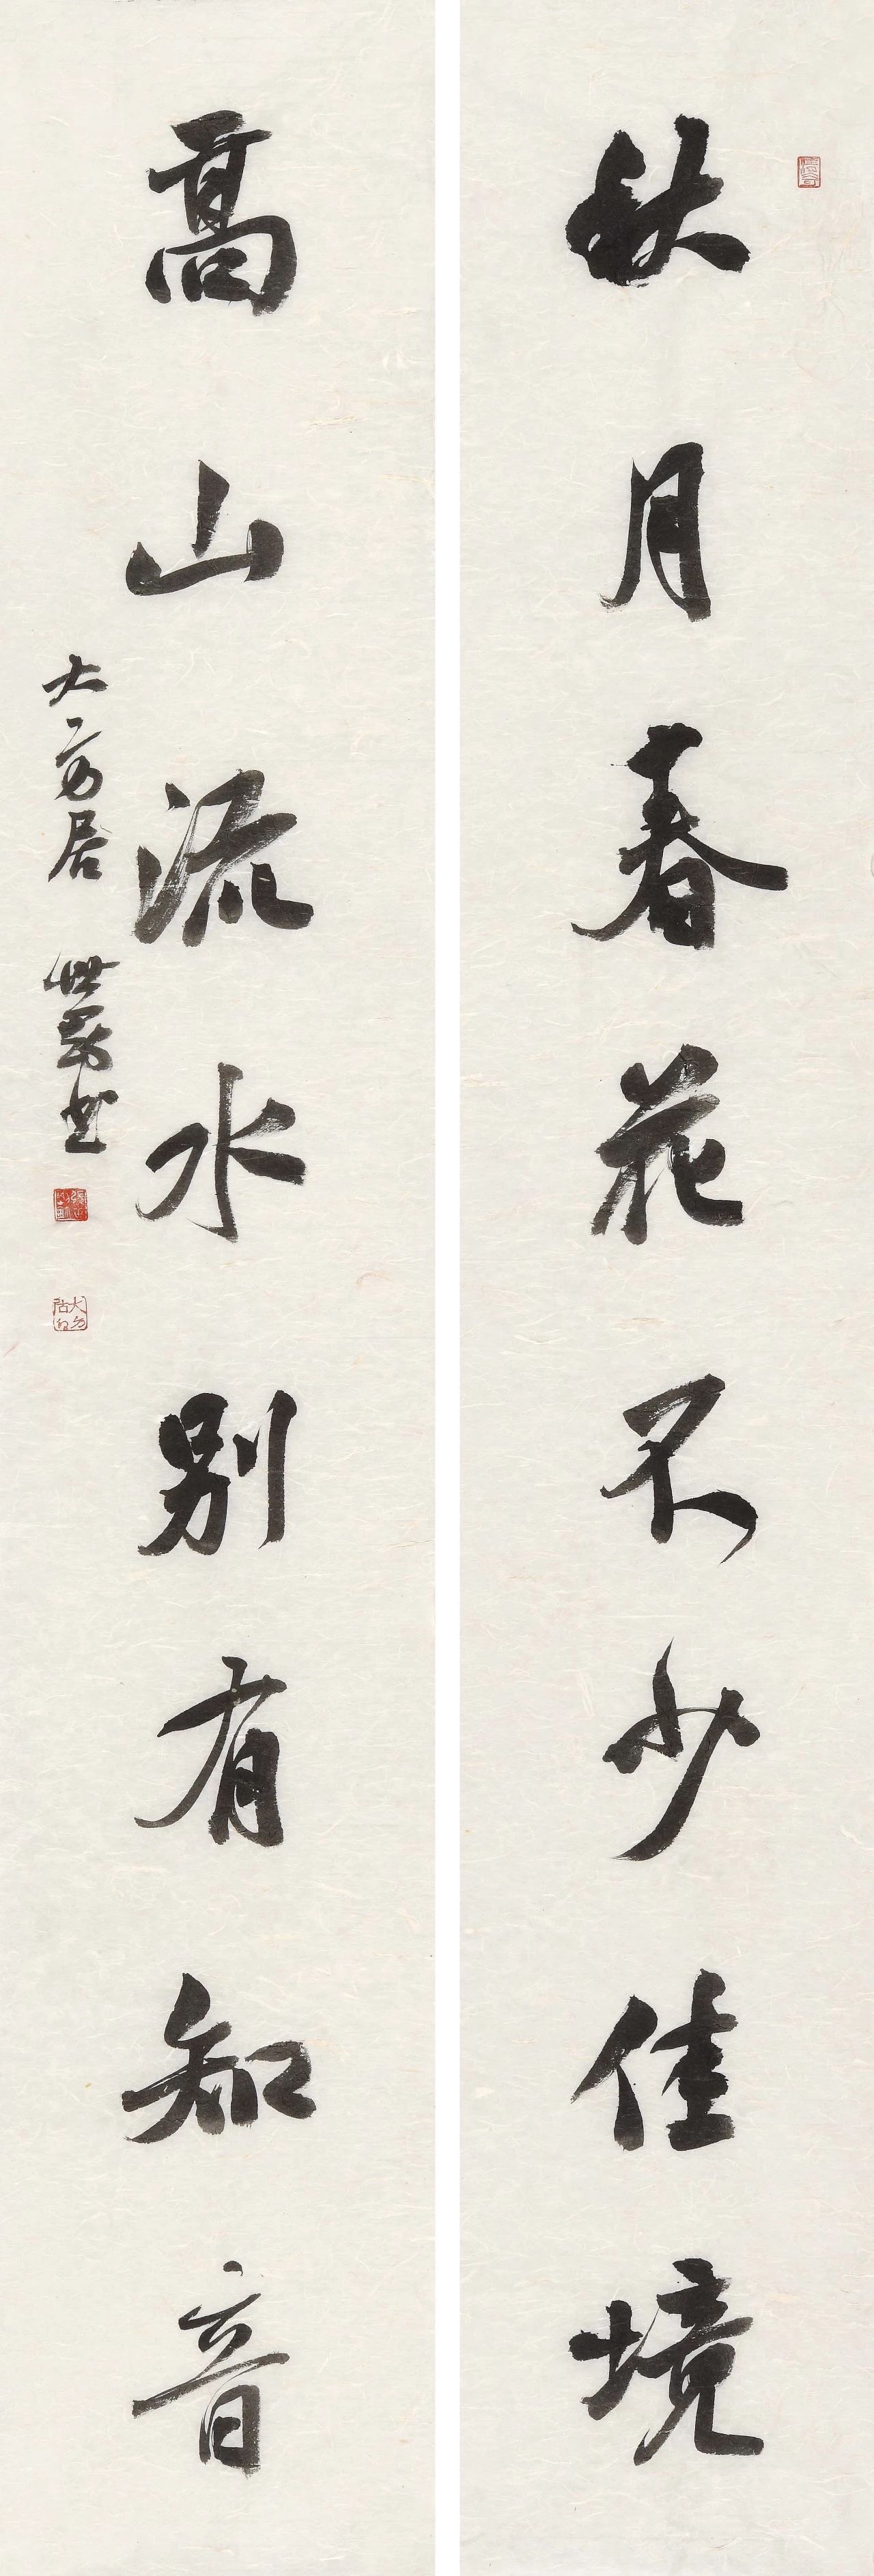 秋月春花不少佳境
高山流水别有知音
大方居
書